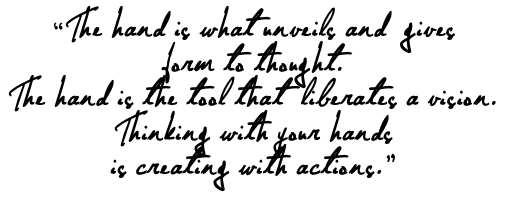 “The hand is what unveils and gives
form to thought.
The hand is the tool that liberates a vision.
Thinking with your hands
is creating with actions.”